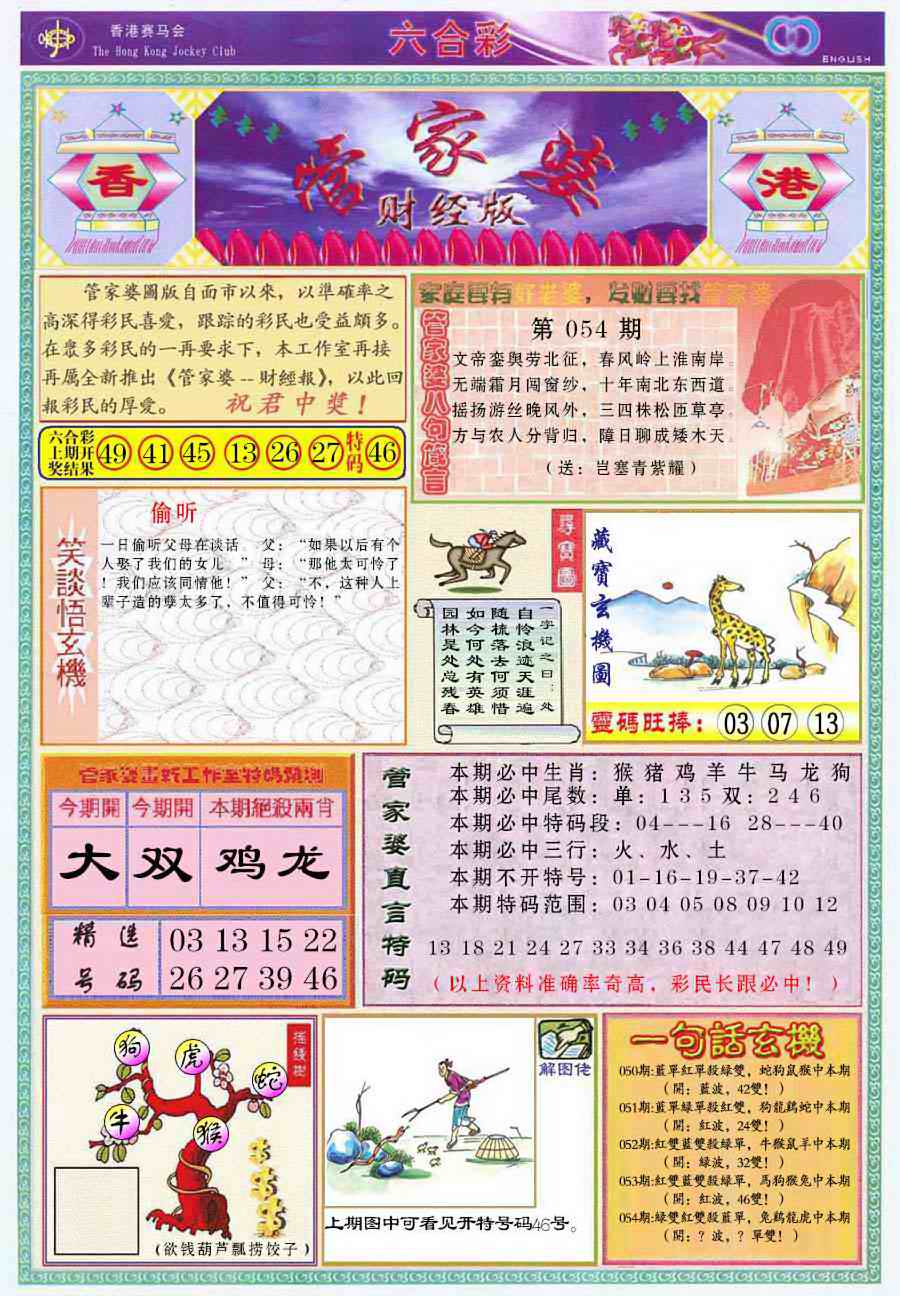 香港赛马会
The Hong Kong Jockey Club
六合彩
ENGLISH
香
管家婆
财经版
港
管家婆圖版自面市以來，以準確率之
高深得彩民喜愛，跟踪的彩民也受益頗多。
在眾多彩民的一再要求下，本工作室再接
再厲全新推出《管家婆--財經報》，以此回
報彩民的厚爱。 祝君中獎！
六合彩
上期开
奖结果
49 41 45 13 26 27 特码 46
家庭要有好老婆，发财要找管家婆
管家婆八句箴言
第 054 期
文帝銮舆劳北征，春风岭上淮南岸。
无端霜月闯窗纱，十年南北东西道。
摇扬游丝晚风外，三四株松匝草亭。
方与农人分背归，障日聊成矮木天。
（送：岂塞青紫耀）
笑談悟玄機
偷听
一日偷听父母在谈话。父：“如果以后有个
人娶了我们的女儿。”母：“那他太可怜了
！我们应该同情他！”父：“不，这种人上
辈子造的孽太多了，不值得可怜！”
尋寶圖
一字记之曰：处
自怜浪迹天涯遍
随梳落去何须惜
如今何处有英雄
园林是处总残春
藏寶玄機圖
靈碼旺捧：03 07 13
管家婆畫新工作室特碼預測
今期開 今期開 本期絕殺兩肖
大 双 鸡龙
精选号码
03 13 15 22
26 27 39 46
管家婆直言特码
本期必中生肖：猴猪鸡羊牛马龙狗
本期必中尾数：单：1 3 5 双：2 4 6
本期必中特码段：04---16 28---40
本期必中三行：火、水、土
本期不开特号：01-16-19-37-42
本期特码范围：03 04 05 08 09 10 12
13 18 21 24 27 33 34 36 38 44 47 48 49
（以上资料准确率奇高，彩民长跟必中！）
摇錢樹
狗
虎
蛇
牛
猴
（欲钱葫芦瓢捞饺子）
解图佬
上期图中可看见开特号码46号。
一句話玄機
050期:藍單紅單殺綠雙，蛇狗鼠猴中本期
（開：藍波，42雙！）
051期:藍單綠單殺紅雙，狗龍鷄蛇中本期
（開：紅波，24雙！）
052期:紅雙藍雙殺綠單，牛猴鼠羊中本期
（開：綠波，32雙！）
053期:紅雙藍雙殺綠單，馬狗猴兔中本期
（開：紅波，46雙！）
054期:綠雙紅雙殺藍單，兔鷄龍虎中本期
（開：？波，？單雙！）